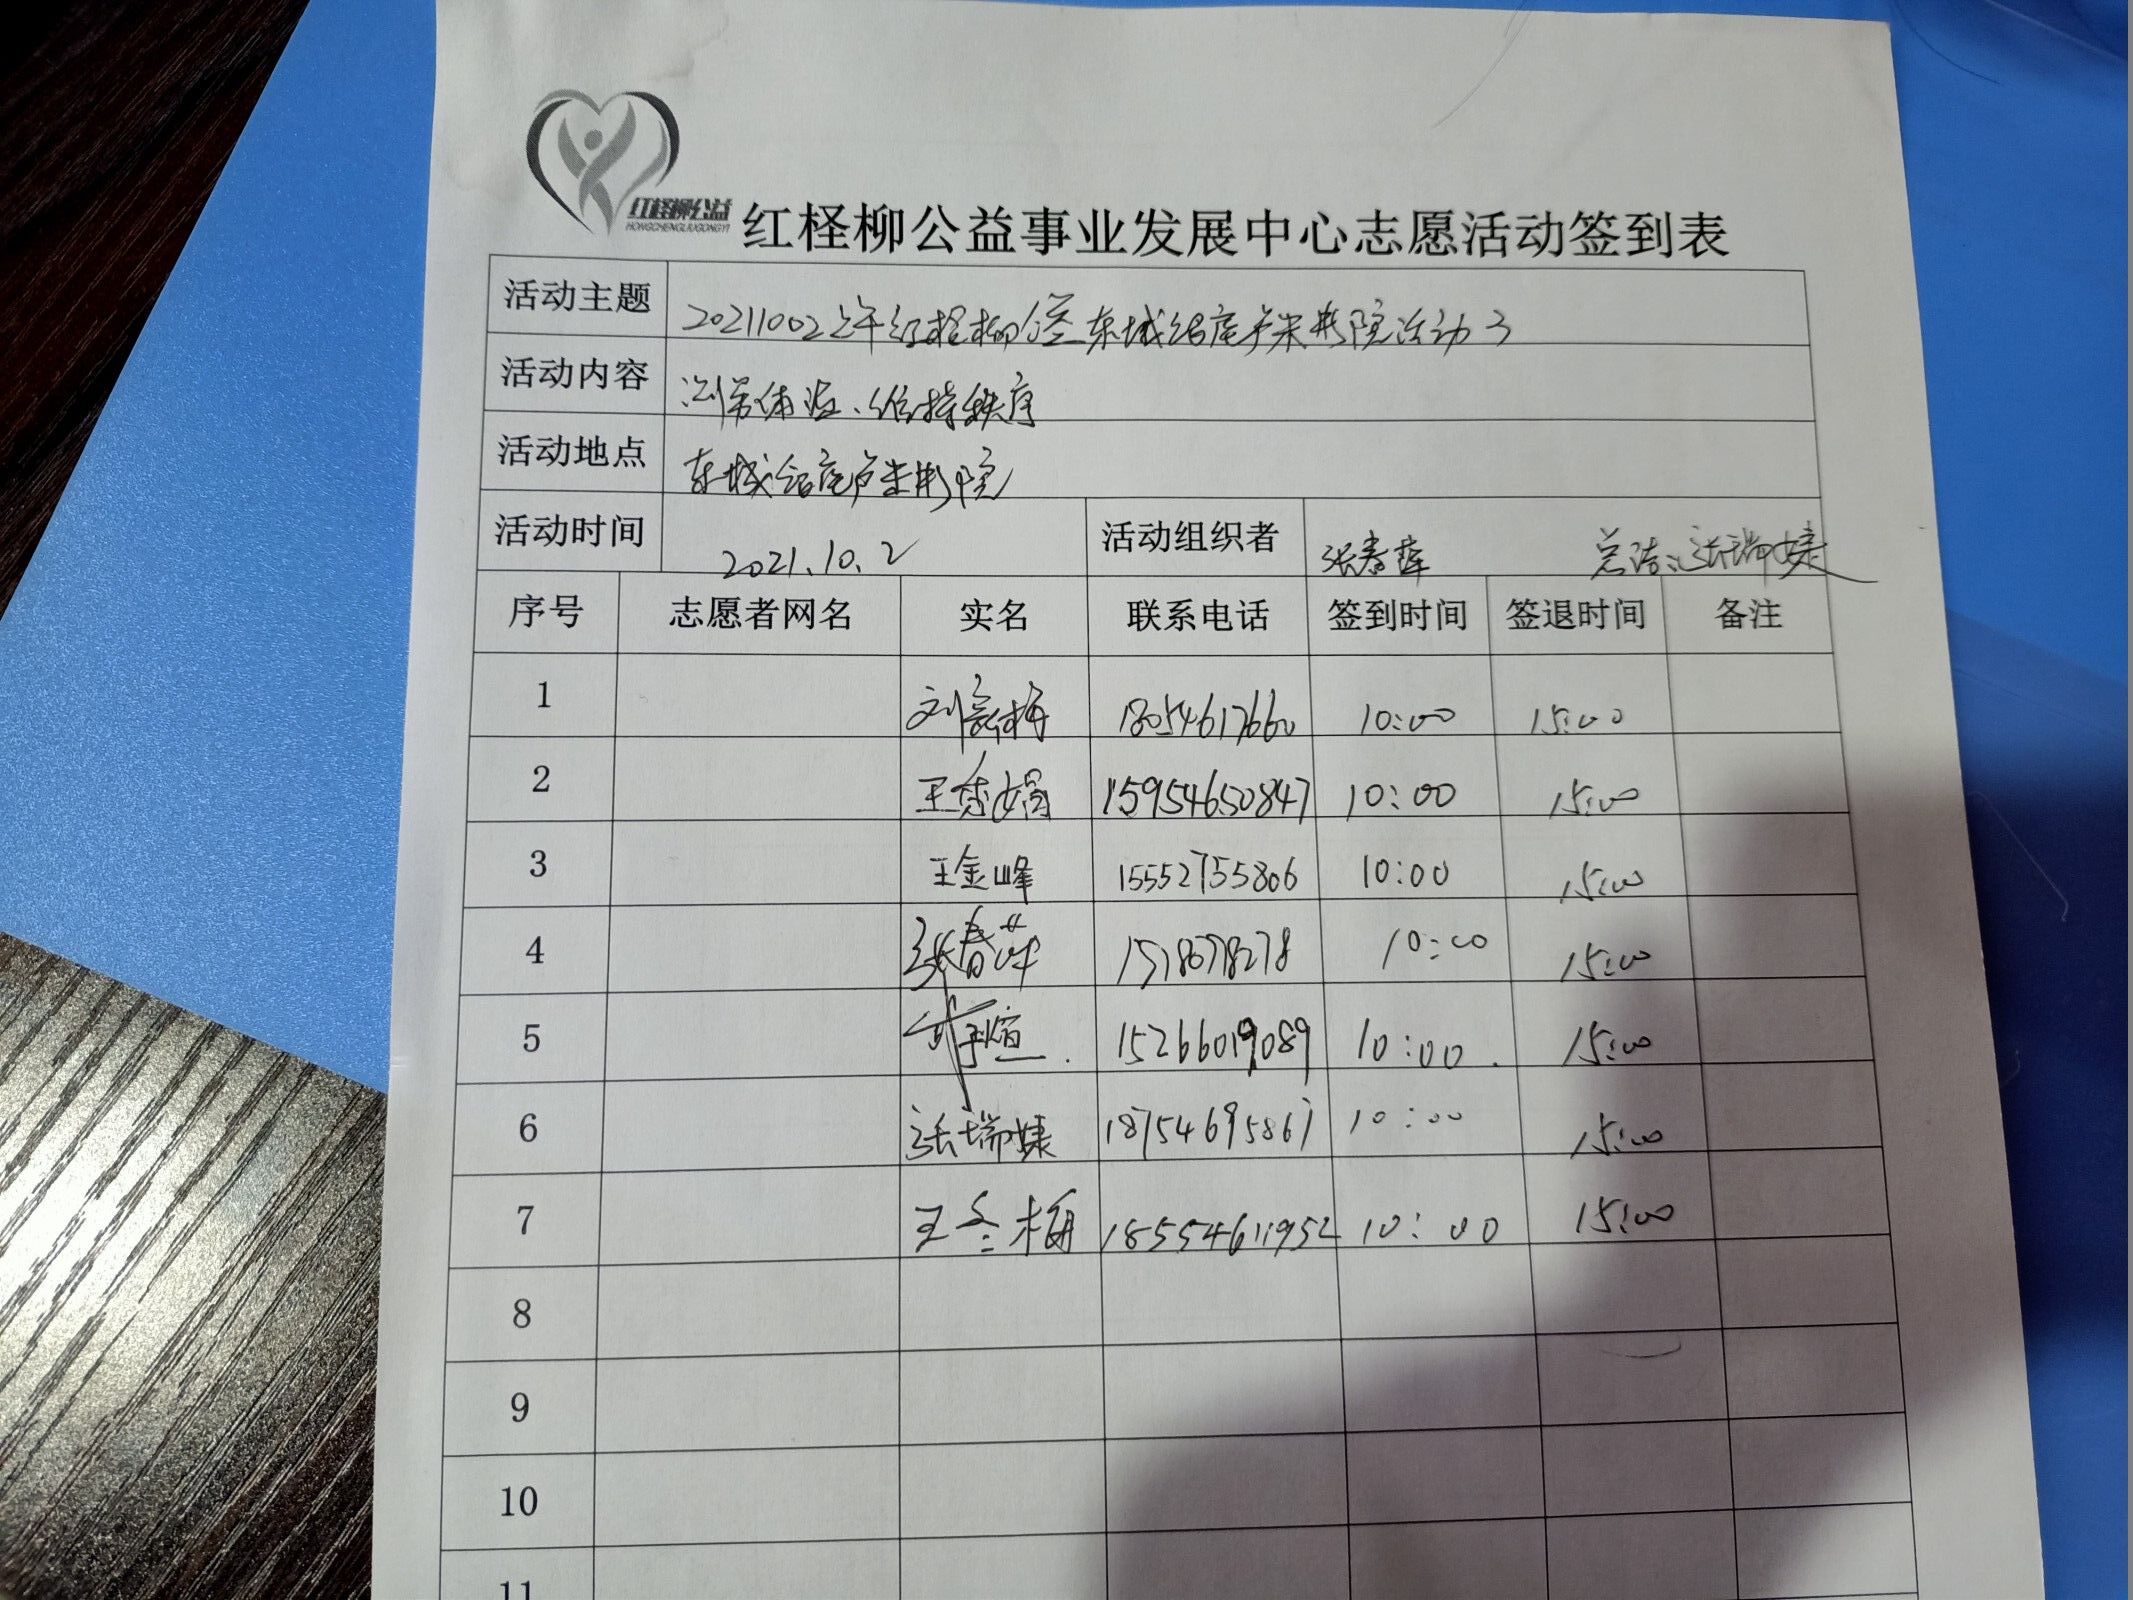 红柽柳公益
HONGCHENGLIUGONGYI
红柽柳公益事业发展中心志愿活动签到表
活动主题 20211002上午红柽柳公益东城颐庭养老院活动3
活动内容 测量体温、维持秩序
活动地点 东城
活动时间 2021.10.2 活动组织者 张春萍 总结:张瑞婕
序号 志愿者网名 实名 联系电话 签到时间 签退时间 备注
1 18054617660 10:00 15:00
2 王秀娟 15954650847 10:00 15:00
3 王金峰 15552755806 10:00 15:00
4 张春萍 10:00 15:00
5 15266019089 10:00 15:00
6 张瑞婕 18754695867 10:00 15:00
7 王冬梅 18554611952 10:00 15:00
8
9
10
11